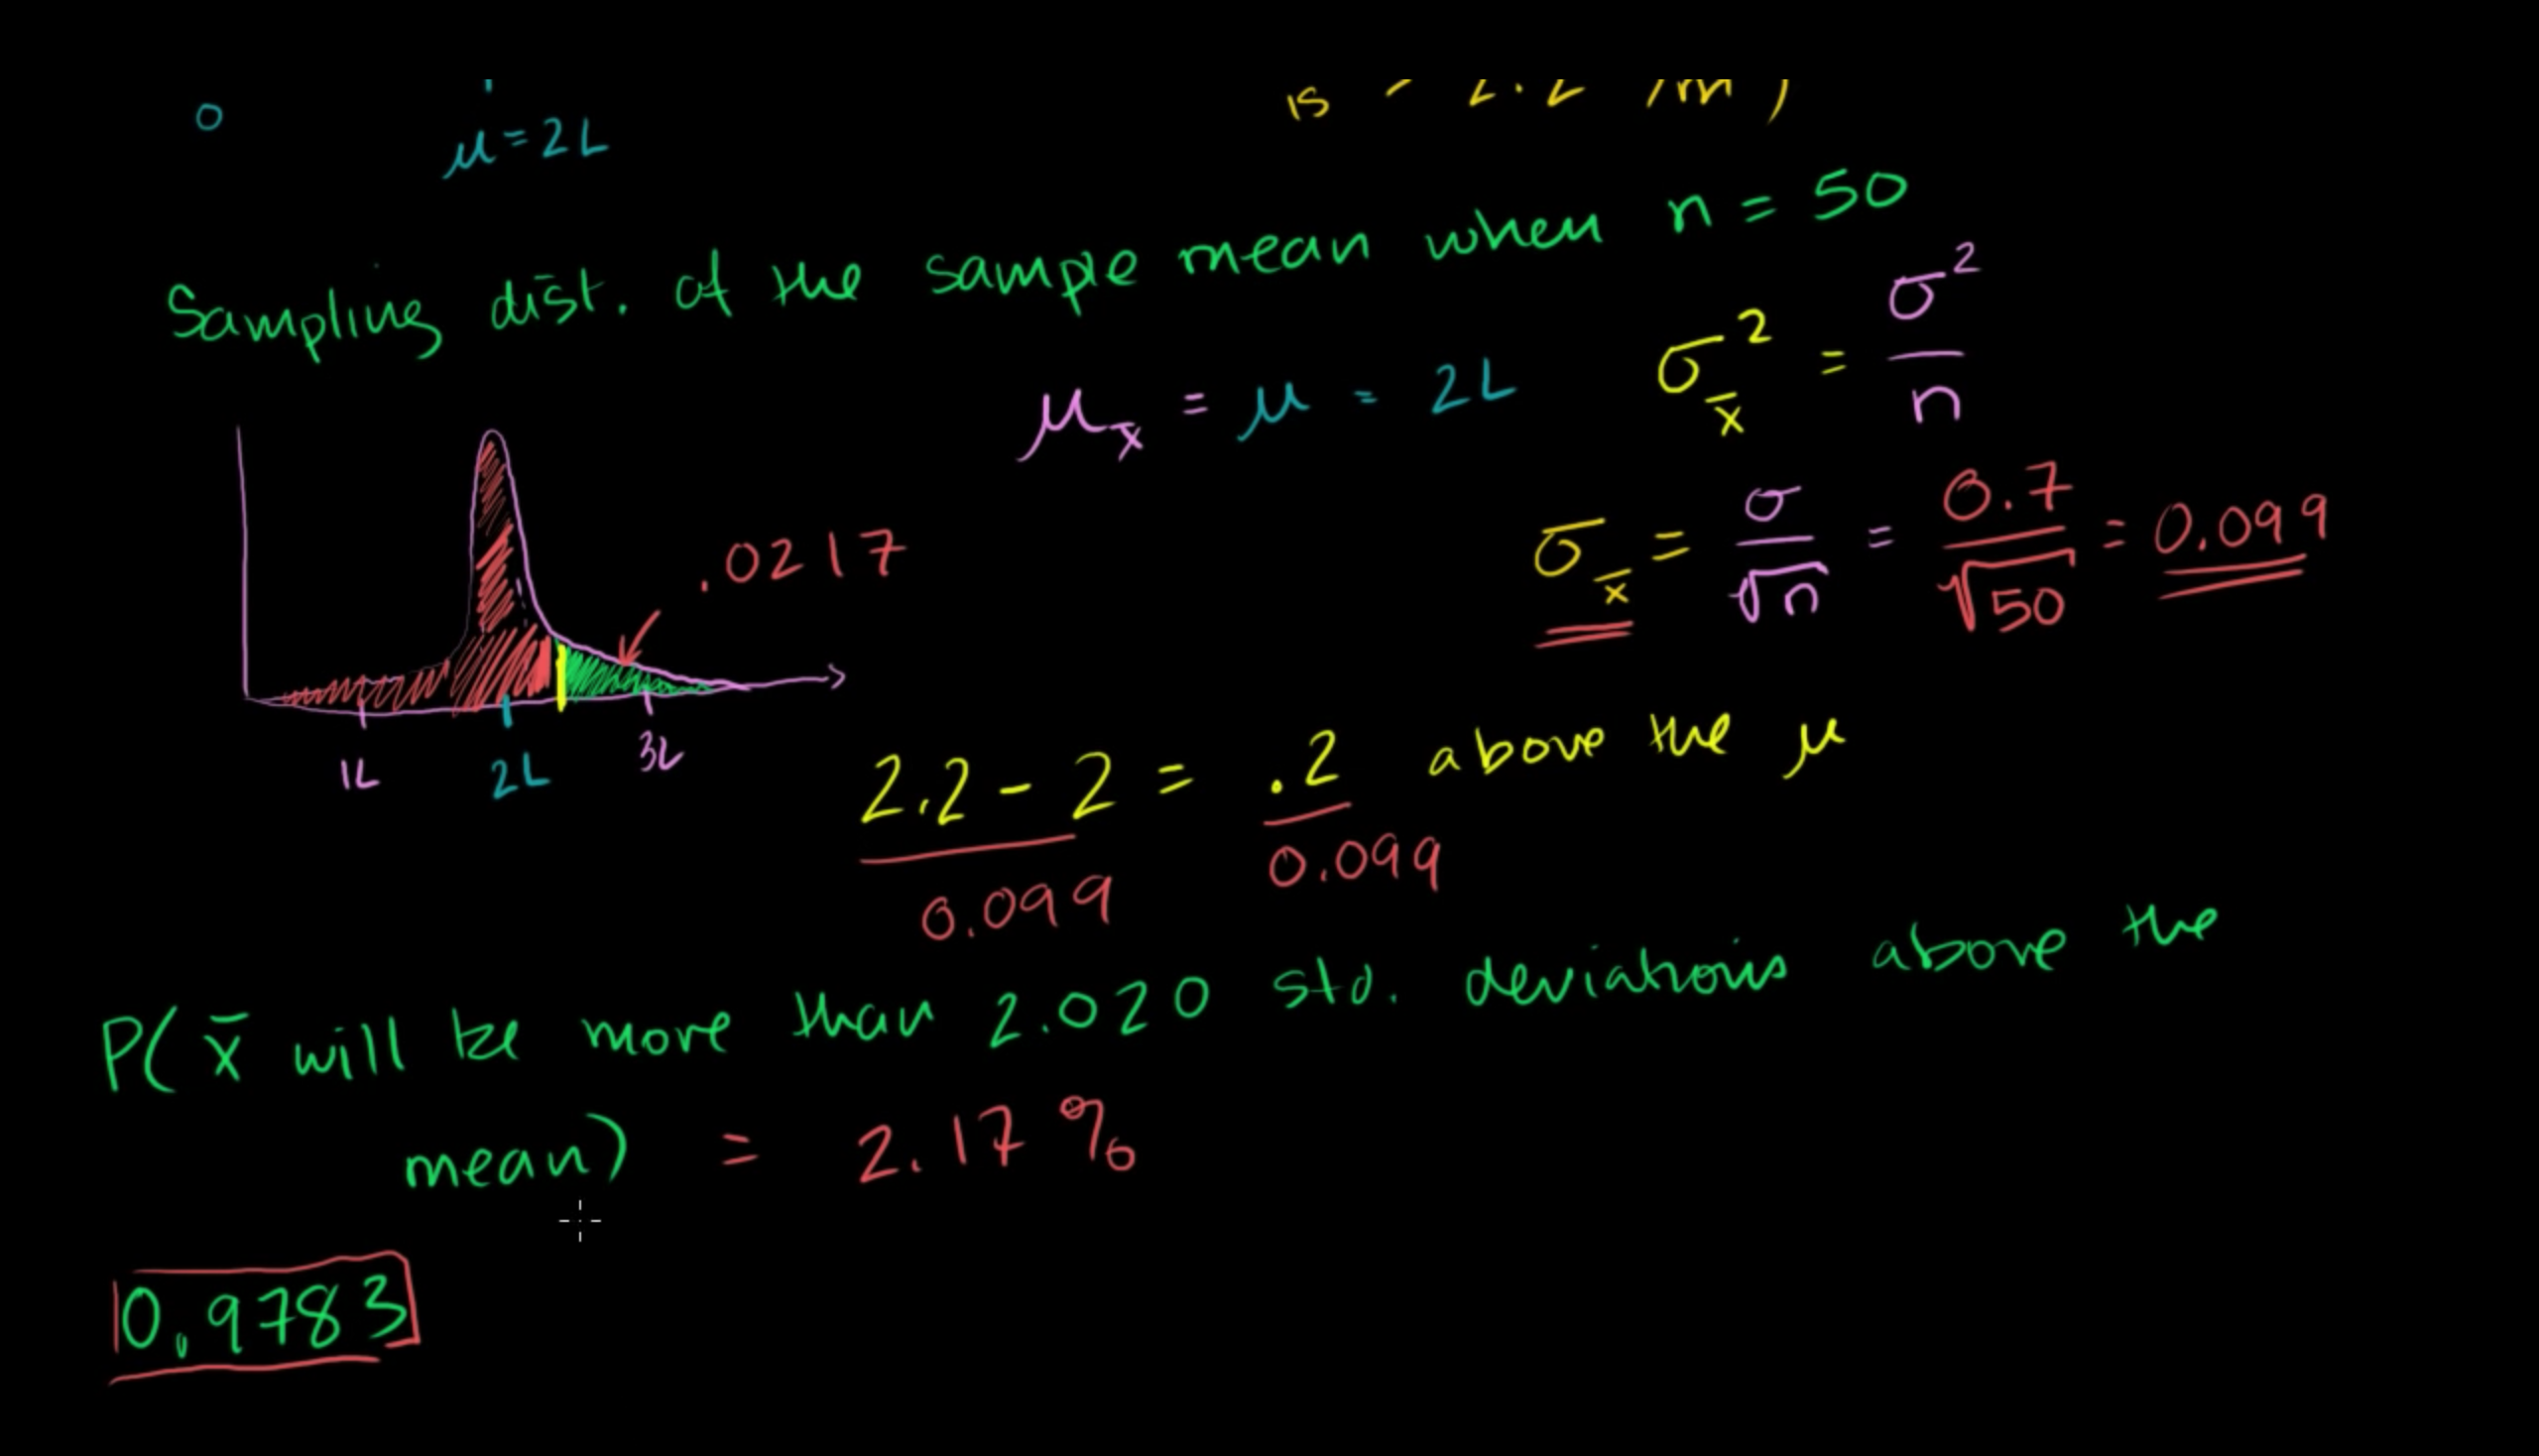 0
μ = 2L
is
Sampling dist. of the sample mean when n = 50
μ_x̄ = μ = 2L
σ_x̄² = σ²/n
σ_x̄ = σ/√n = 0.7/√50 = 0.099
.0217
1L 2L 3L
2.2 - 2 = .2 above the μ
0.099 0.099
P( x̄ will be more than 2.020 std. deviations above the
mean) = 2.17 %
0.9783